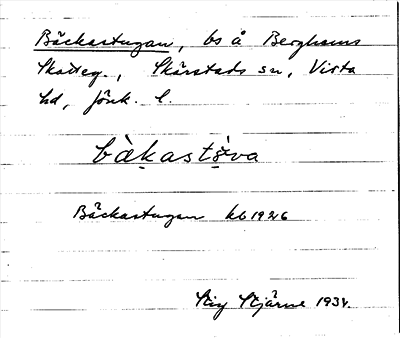 Bäckastugan, bs å Berghems
Skatteg., Skärstads sn, Vista
hd, Jönk. l.
bàkastòva
Bäckastugan kb 1926
Stig Stjärne 1934.